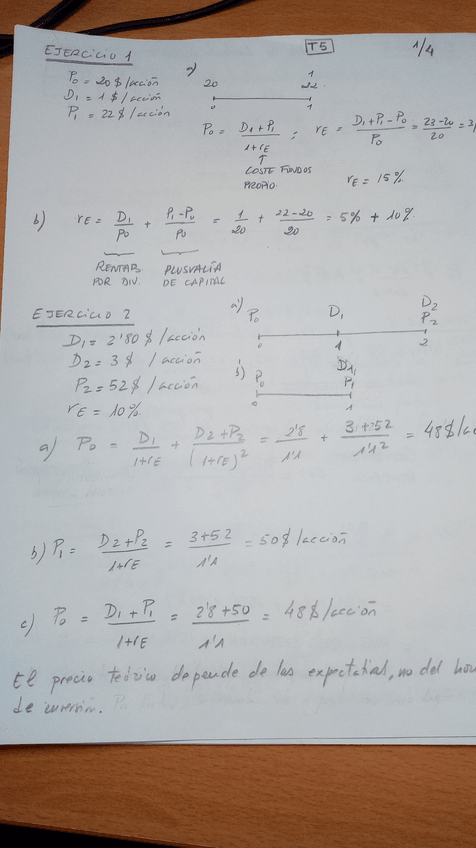 T5
1/4
EJERCICIO 1
P0 = 20 $ /acción
D1 = 1 $ /acción
P1 = 22 $ /acción
a)
20 1 22
0 1
P0 = (D1 + P1) / (1+rE) ; rE = (D1 + P1 - P0) / P0 = (23 - 20) / 20 = 3/
↑
COSTE FONDOS
PROPIO
rE = 15%
b) rE = D1/P0 + (P1 - P0)/P0 = 1/20 + (22 - 20)/20 = 5% + 10%
RENTAB. POR DIV.
PLUSVALÍA DE CAPITAL
EJERCICIO 2
D1 = 2'80 $ /acción
D2 = 3 $ /acción
P2 = 52 $ /acción
rE = 10%
a) P0 D1 D2 P2
0 1 2
b) P0 D1, P1
0 1
a) P0 = D1/(1+rE) + (D2 + P2)/(1+rE)^2 = 2'8/1'1 + (3 + 52)/1'1^2 = 48 $/
b) P1 = (D2 + P2)/(1+rE) = (3+52)/1'1 = 50 $ /acción
c) P0 = (D1 + P1)/(1+rE) = (2'8 + 50)/1'1 = 48 $ /acción
El precio teórico depende de las expectativas, no del
de inversión.